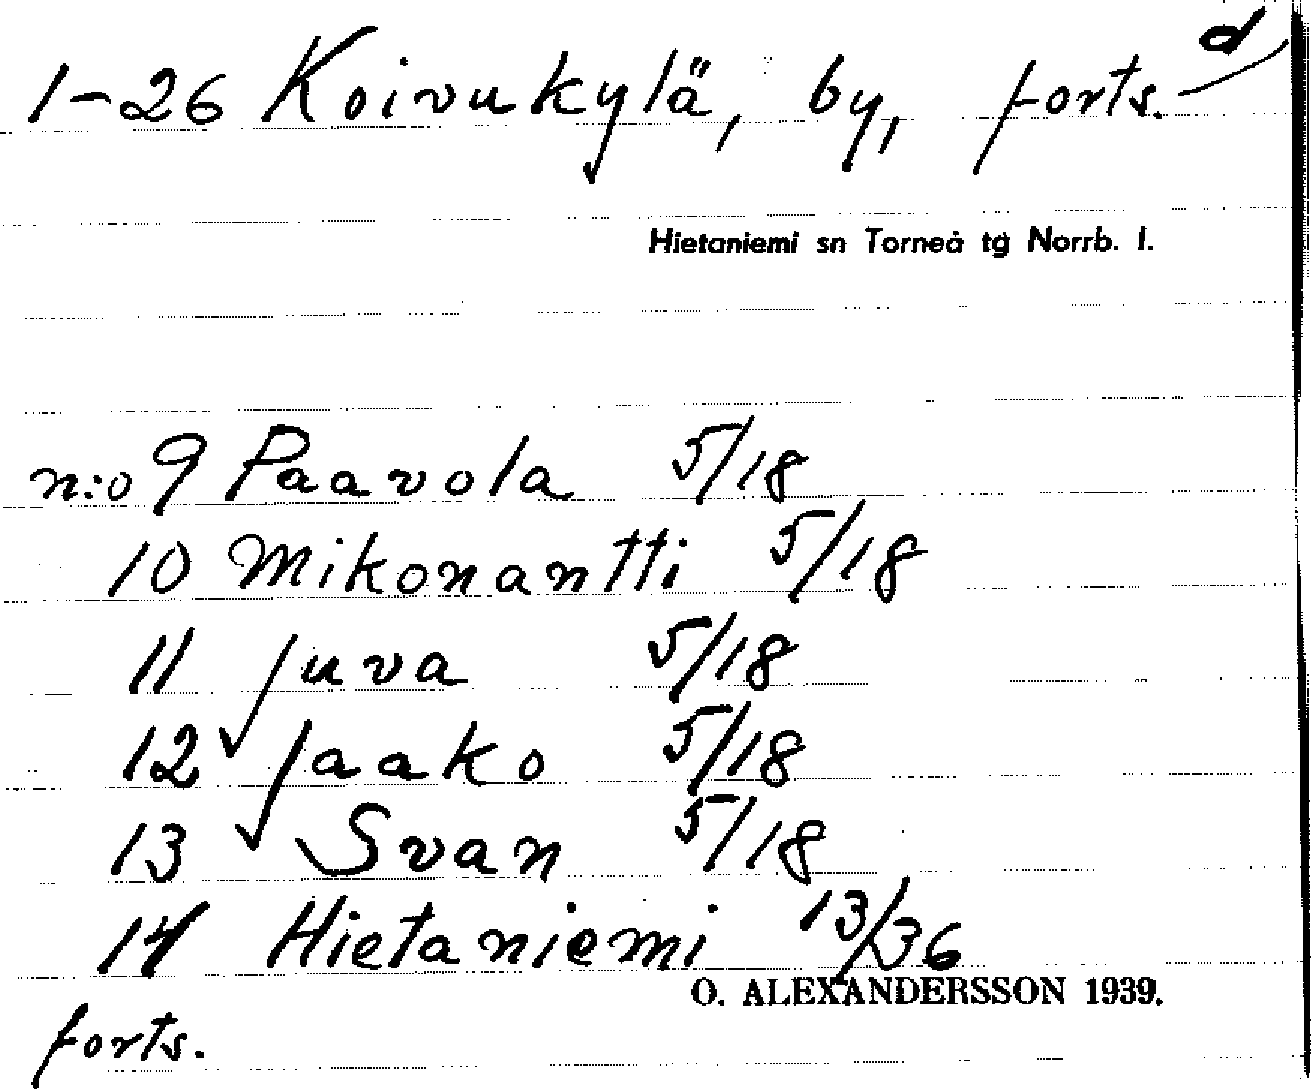 d
1-26 Koivukylä, by, forts.
Hietaniemi sn Torneå tg Norrb. l.
n:o 9 Paavola 5/18
10 Mikonantti 5/18
11 Juva 5/18
12 Jaako 5/18
13 Svan 5/18
14 Hietaniemi 13/36
O. ALEXANDERSSON 1939.
forts.